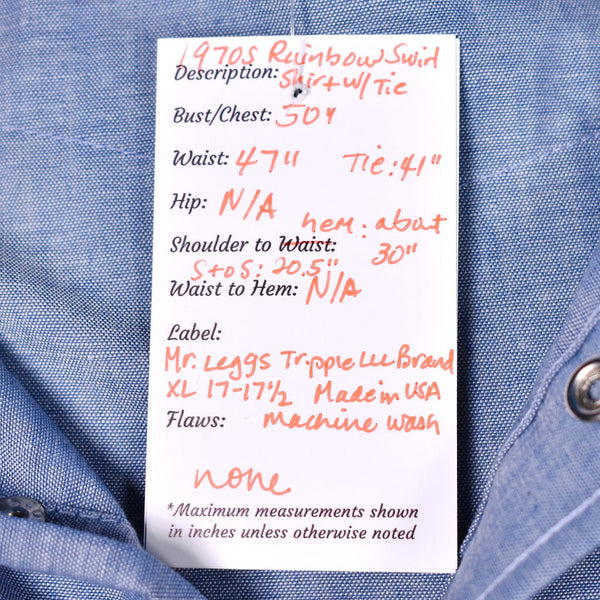 1970s Rainbow Swirl
Description: Shirt w/ Tie
Bust/Chest: 50"
Waist: 47" Tie: 41"
Hip: N/A
hem: about
Shoulder to Waist: 30"
S to S: 20.5"
Waist to Hem: N/A
Label:
Mr. Leggs Tripple Lee Brand
XL 17-17½ Made in USA
Flaws: Machine wash
none
*Maximum measurements shown
in inches unless otherwise noted